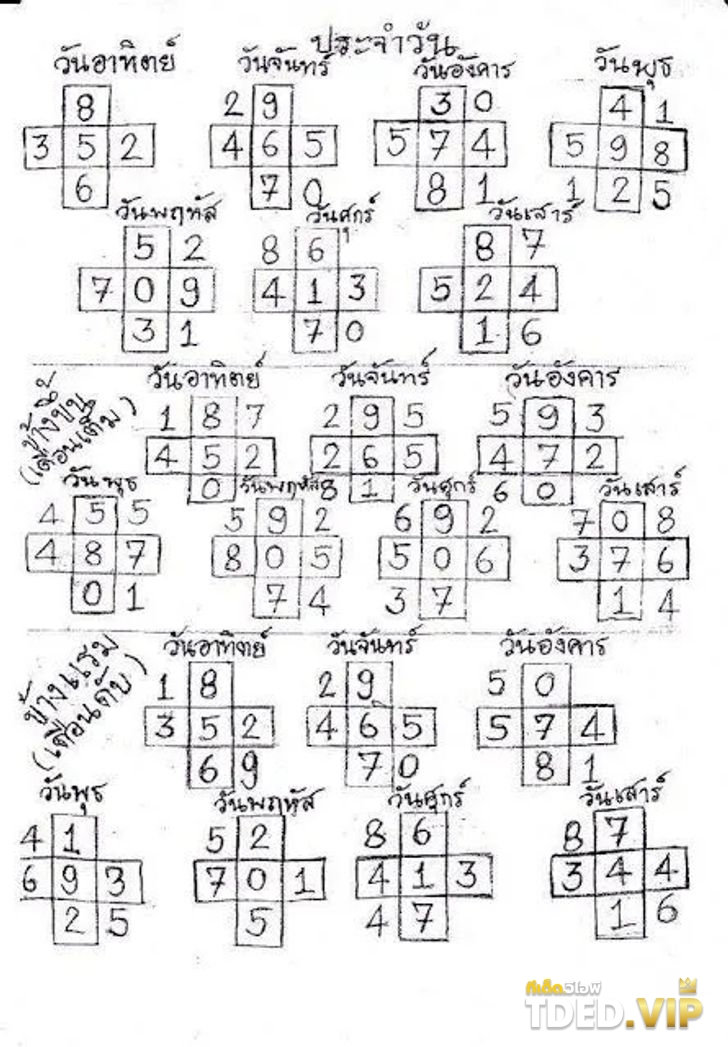 ประจำวัน
วันอาทิตย์ วันจันทร์ วันอังคาร วันพุธ
8 2 9 3 0 4 1
3 5 2 4 6 5 5 7 4 5 9 8
6 7 0 8 1 1 2 5
วันพฤหัส วันศุกร์ วันเสาร์
5 2 8 6 8 7
7 0 9 4 1 3 5 2 4
3 1 7 0 1 6
ข้างขึ้น
(เดือนเต็ม)
วันอาทิตย์ วันจันทร์ วันอังคาร
1 8 7 2 9 5 5 9 3
4 5 2 2 6 5 4 7 2
0 8 1 6 0
วันพุธ วันพฤหัส วันศุกร์ วันเสาร์
4 5 5 5 9 2 6 9 2 7 0 8
4 8 7 8 0 5 5 0 6 3 7 6
0 1 7 4 3 7 1 4
ข้างแรม
(เดือนดับ)
วันอาทิตย์ วันจันทร์ วันอังคาร
1 8 2 9 5 0
3 5 2 4 6 5 5 7 4
6 9 7 0 8 1
วันพุธ วันพฤหัส วันศุกร์ วันเสาร์
4 1 5 2 8 6 8 7
6 9 3 7 0 1 4 1 3 3 4 4
2 5 5 4 7 1 6
ทีเด็ด5โอฟ
TDED.VIP